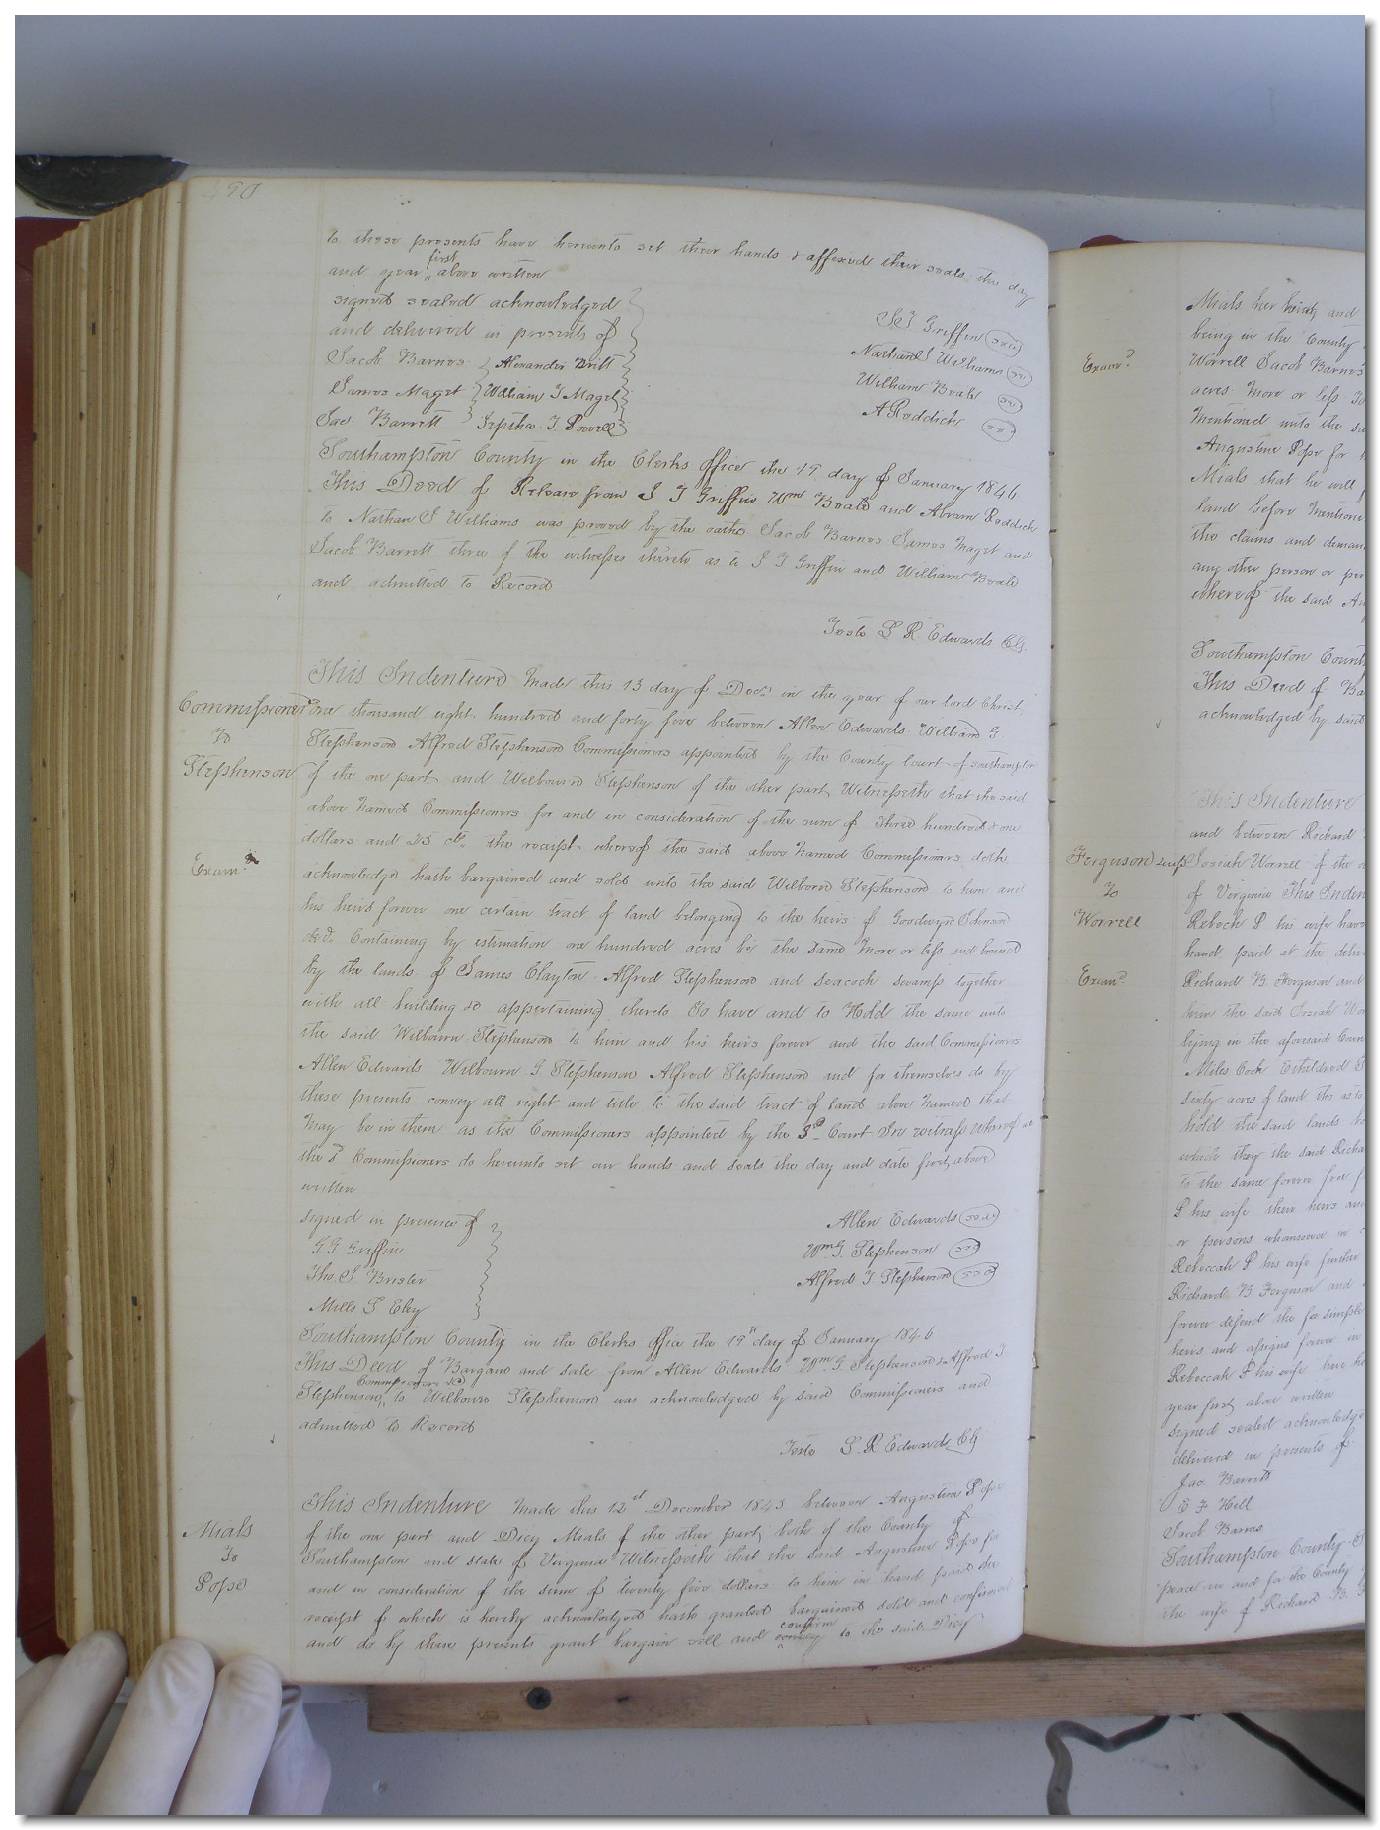 490
to these presents have hereunto set their hands & affixed their seals the day
first
and year above written
signed sealed acknowledged
and delivered in presents of
Jacob Barnes Alexander Britt
James Maget William J Maget
Jac Barrett Jeptha J Powell
S J Griffin
Nathan S Williams
William Beale
A Reddick
Southampton County in the Clerks office the 19 day of January 1846
This Deed of Release from S J Griffin Wm Beale and Abram Reddick
to Nathan S Williams was proved by the oaths Jacob Barnes James Maget and
Jacob Barrett three of the witnesses thereto as to S J Griffin and William Beale
and admitted to Record
Teste L R Edwards Clk
Commissioners
To
Stephenson
Exam.d
This Indenture Made this 13 day of Decr in the year of our lord Christ
one thousand eight hundred and forty five between Allen Edwards William G
Stephenson Alfred Stephenson Commissioners appointed by the County Court of Southampton
of the one part and Wilbourn Stephenson of the other part Witnesseth that the said
above Named Commissioners for and in consideration of the sum of three hundred & one
dollars and 25 cts the receipt whereof the said above Named Commissioners doth
acknowledge hath bargained and sold unto the said Wilborn Stephenson to him and
his heirs forever one certain tract of land belonging to the heirs of Goodwyn Johnson
decd. Containing by estimation one hundred acres be the same More or less and bound
by the lands of James Clayton Alfred Stephenson and Seacock swamp together
with all building &c appertaining thereto To have and to Hold the same unto
the said Wilbourn Stephenson to him and his heirs forever and the said Commissioners
Allen Edwards Wilbourn G Stephenson Alfred Stephenson and for themselves do by
these presents convey all right and title to the said tract of land above Named that
May be in them as the Commissioners appointed by the Sd Court In witness whereof we
the sd Commissioners do hereunto set our hands and seals the day and date first above
written
signed in presence of
G. G Griffin
Tho. S Brister
Mills S Eley
Allen Edwards
Wm G. Stephenson
Alfred J Stephenson
Southampton County in the Clerks office the 19th day of January 1846
This Deed of Bargain and sale from Allen Edwards Wm G. Stephenson & Alfred J.
Commissioners &c
Stephenson, to Wilbourn Stephenson was acknowledged by said Commissioners and
admitted to Record
Teste L. R Edwards Clk
Mials
To
Pope
This Indenture Made this 12th December 1845 between Augustine Pope
of the one part and Dicy Mials of the other part both of the County of
Southampton and state of Virginia Witnesseth that the said Augustine Pope for
and in consideration of the sum of twenty five dollars to him in hand paid the
receipt of which is hereby acknowledged hath granted bargained sold and confirmed
confirm
and do by these presents grant bargain sell and convey to the said Dicy
Exam.d
Mials her heirs and
being in the County
Worrell Jacob Barnes
acres More or less To
Mentioned unto the
Augustine Pope for
Mials that he will
land before Mentioned
the claims and
any other person or
whereof the said
Southampton
This Deed of
acknowledged by said
Ferguson & wife
To
Worrell
Exam.d
This Indenture
and between Richard
Josiah Worrell of the
of Virginia This
his wife
hand paid at the
Richard B. Ferguson and
him the said Josiah
lying in the aforesaid
Miles Cook Etheldred
sixty acres of land
hold the said lands
which they the said
to the same forever free
P his wife their heirs
or persons whomsoever
Rebeccah P his wife further
Richard B Ferguson and
forever defend the fee simple
heirs and assigns forever
Rebeccah P his wife have
year first above written
signed sealed
delivered in presents of
Jac. Barrett
E F Hill
Jacob Barnes
Southampton County
peace in and for the County
the wife of Richard B.